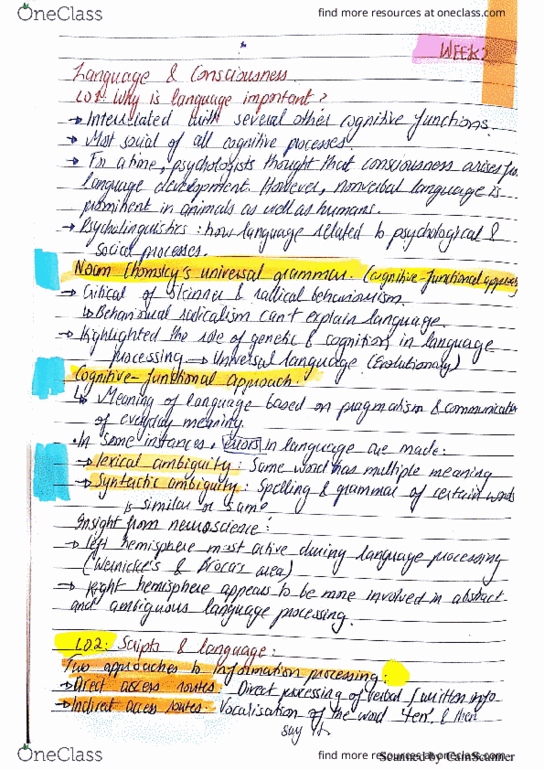 OneClass
find more resources at oneclass.com
WEEK 2
Language & Consciousness.
LO1: Why is language important?
→ Interrelated with several other cognitive functions.
→ Most social of all cognitive processes.
→ For a time, psychologists thought that consciousness arises
language development. However, nonverbal language is
prominent in animals as well as humans.
→ Psycholinguistics : how language related to psychological &
social processes.
Noam Chomsky's universal grammar. (cognitive-functional
→ Critical of Skinner & radical behaviourism.
↳ Behavioural radicalism can't explain language.
→ Highlighted the role of genetic & cognition in language
processing → Universal language (Evolutionary)
Cognitive-functional approach.
↳ Meaning of language based on pragmatism &
of everyday meaning.
• In some instances, errors in language are made:
→ lexical ambiguity : Same word has multiple meaning
→ Syntactic ambiguity : Spelling & grammar of certain words
is similar or same
Insight from neuroscience:
→ left hemisphere most active during language processing
(Wernicke's & Broca's area)
→ Right hemisphere appears to be more involved in abstract
and ambiguous language processing.
LO2: Scripts & language:
Two approaches to information processing:
→ Direct access routes: Direct processing of verbal / written info
→ Indirect access routes: Vocalisation of the word & then
say it.
OneClass
find more resources at oneclass.com
Scanned by CamScanner